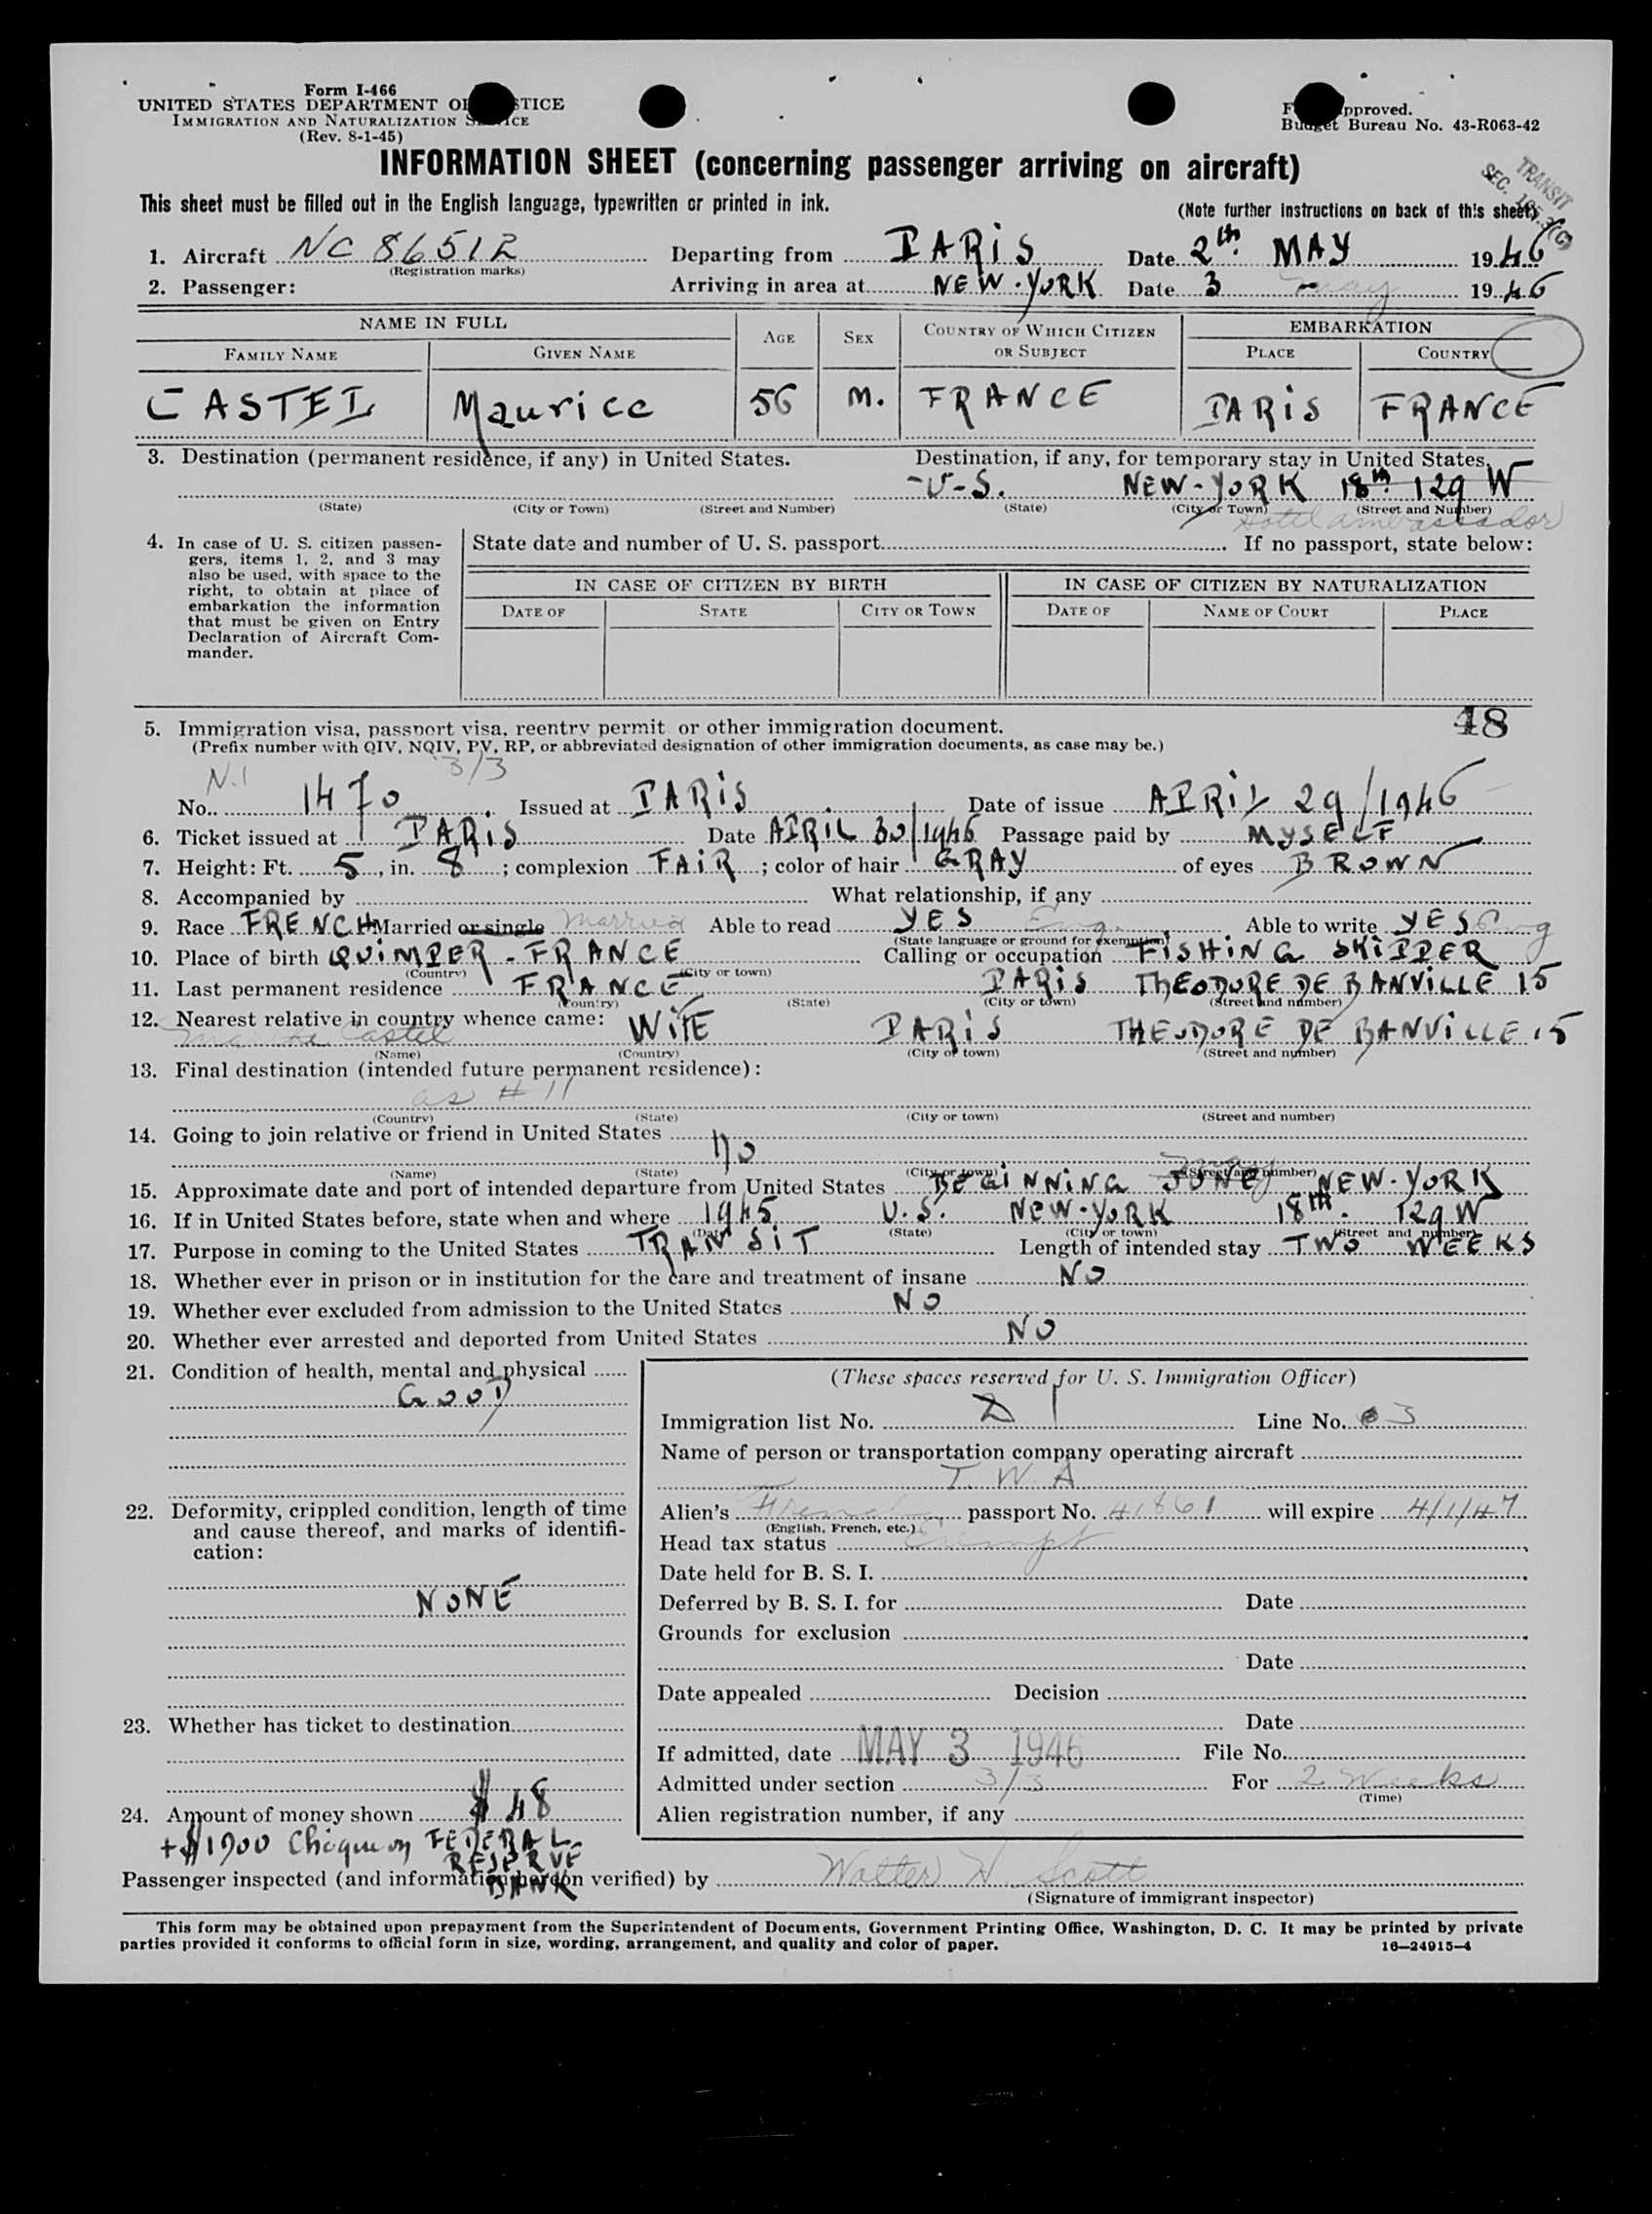 Form I-466
UNITED STATES DEPARTMENT OF JUSTICE
IMMIGRATION AND NATURALIZATION SERVICE
(Rev. 8-1-45)
Form approved.
Budget Bureau No. 43-R063-42
INFORMATION SHEET (concerning passenger arriving on aircraft)
TRANSIT
SEC.
This sheet must be filled out in the English language, typewritten or printed in ink.
(Note further instructions on back of this sheet)
1. Aircraft NC 86512 Departing from PARiS Date 2th MAY 1946
(Registration marks)
2. Passenger: Arriving in area at NEW-YORK Date 3 May 1946
NAME IN FULL AGE SEX COUNTRY OF WHICH CITIZEN OR SUBJECT EMBARKATION
FAMILY NAME GIVEN NAME PLACE COUNTRY
CASTEL Maurice 56 M. FRANCE PARiS FRANCE
3. Destination (permanent residence, if any) in United States. Destination, if any, for temporary stay in United States.
-U-S. NEW-YORK 18th 129 W
(State) (City or Town) (Street and Number) (State) (City or Town) (Street and Number)
Hotel Ambassador
4. In case of U. S. citizen passengers, items 1, 2, and 3 may also be used, with space to the right, to obtain at place of embarkation the information that must be given on Entry Declaration of Aircraft Commander.
State date and number of U. S. passport If no passport, state below:
IN CASE OF CITIZEN BY BIRTH IN CASE OF CITIZEN BY NATURALIZATION
DATE OF STATE CITY OR TOWN DATE OF NAME OF COURT PLACE
48
5. Immigration visa, passport visa, reentry permit or other immigration document.
(Prefix number with QIV, NQIV, PV, RP, or abbreviated designation of other immigration documents, as case may be.)
3/3
No. 1470 Issued at PARiS Date of issue APRiL 29/1946
6. Ticket issued at PARiS Date APRIL 30/1946 Passage paid by MYSELF
7. Height: Ft. 5, in. 8; complexion FAiR; color of hair GRAY of eyes BROWN
8. Accompanied by What relationship, if any
9. Race FRENCH Married or single Married Able to read YES Eng. Able to write YES Eng
(State language or ground for exemption)
10. Place of birth QUiMPER - FRANCE Calling or occupation FiSHiNG SKiPPER
(Country) (City or town)
11. Last permanent residence FRANCE PARiS THEODORE DE BANViLLE 15
(Country) (State) (City or town) (Street and number)
12. Nearest relative in country whence came: WIFE PARiS THEODORE DE BANViLLE 15
Castel
(Name) (Country) (City or town) (Street and number)
13. Final destination (intended future permanent residence):
as # 11
(Country) (State) (City or town) (Street and number)
14. Going to join relative or friend in United States
no
(Name) (State) (City or town) (Street and number)
15. Approximate date and port of intended departure from United States BEGiNNiNG JUNE NEW-YORK
16. If in United States before, state when and where 1945 U.S. NEW-YORK 18th. 129 W
(Date) (State) (City or town) (Street and number)
17. Purpose in coming to the United States TRANSiT Length of intended stay TWO WEEKS
18. Whether ever in prison or in institution for the care and treatment of insane NO
19. Whether ever excluded from admission to the United States NO
20. Whether ever arrested and deported from United States NO
21. Condition of health, mental and physical
GOOD
22. Deformity, crippled condition, length of time and cause thereof, and marks of identification:
NONE
23. Whether has ticket to destination
24. Amount of money shown $ 48
+ $1900 Cheque on FEDERAL
RESERVE
BANK
(These spaces reserved for U. S. Immigration Officer)
Immigration list No. Line No. 3
Name of person or transportation company operating aircraft
T. W. A
Alien's French passport No. 41861 will expire 4/1/47
(English, French, etc.)
Head tax status Exempt
Date held for B. S. I.
Deferred by B. S. I. for Date
Grounds for exclusion
Date
Date appealed Decision
Date
If admitted, date MAY 3 1946 File No.
Admitted under section 3/3 For 2 Weeks
(Time)
Alien registration number, if any
Passenger inspected (and information hereon verified) by Walter H Scott
(Signature of immigrant inspector)
This form may be obtained upon prepayment from the Superintendent of Documents, Government Printing Office, Washington, D. C. It may be printed by private
parties provided it conforms to official form in size, wording, arrangement, and quality and color of paper.
16—24915-4